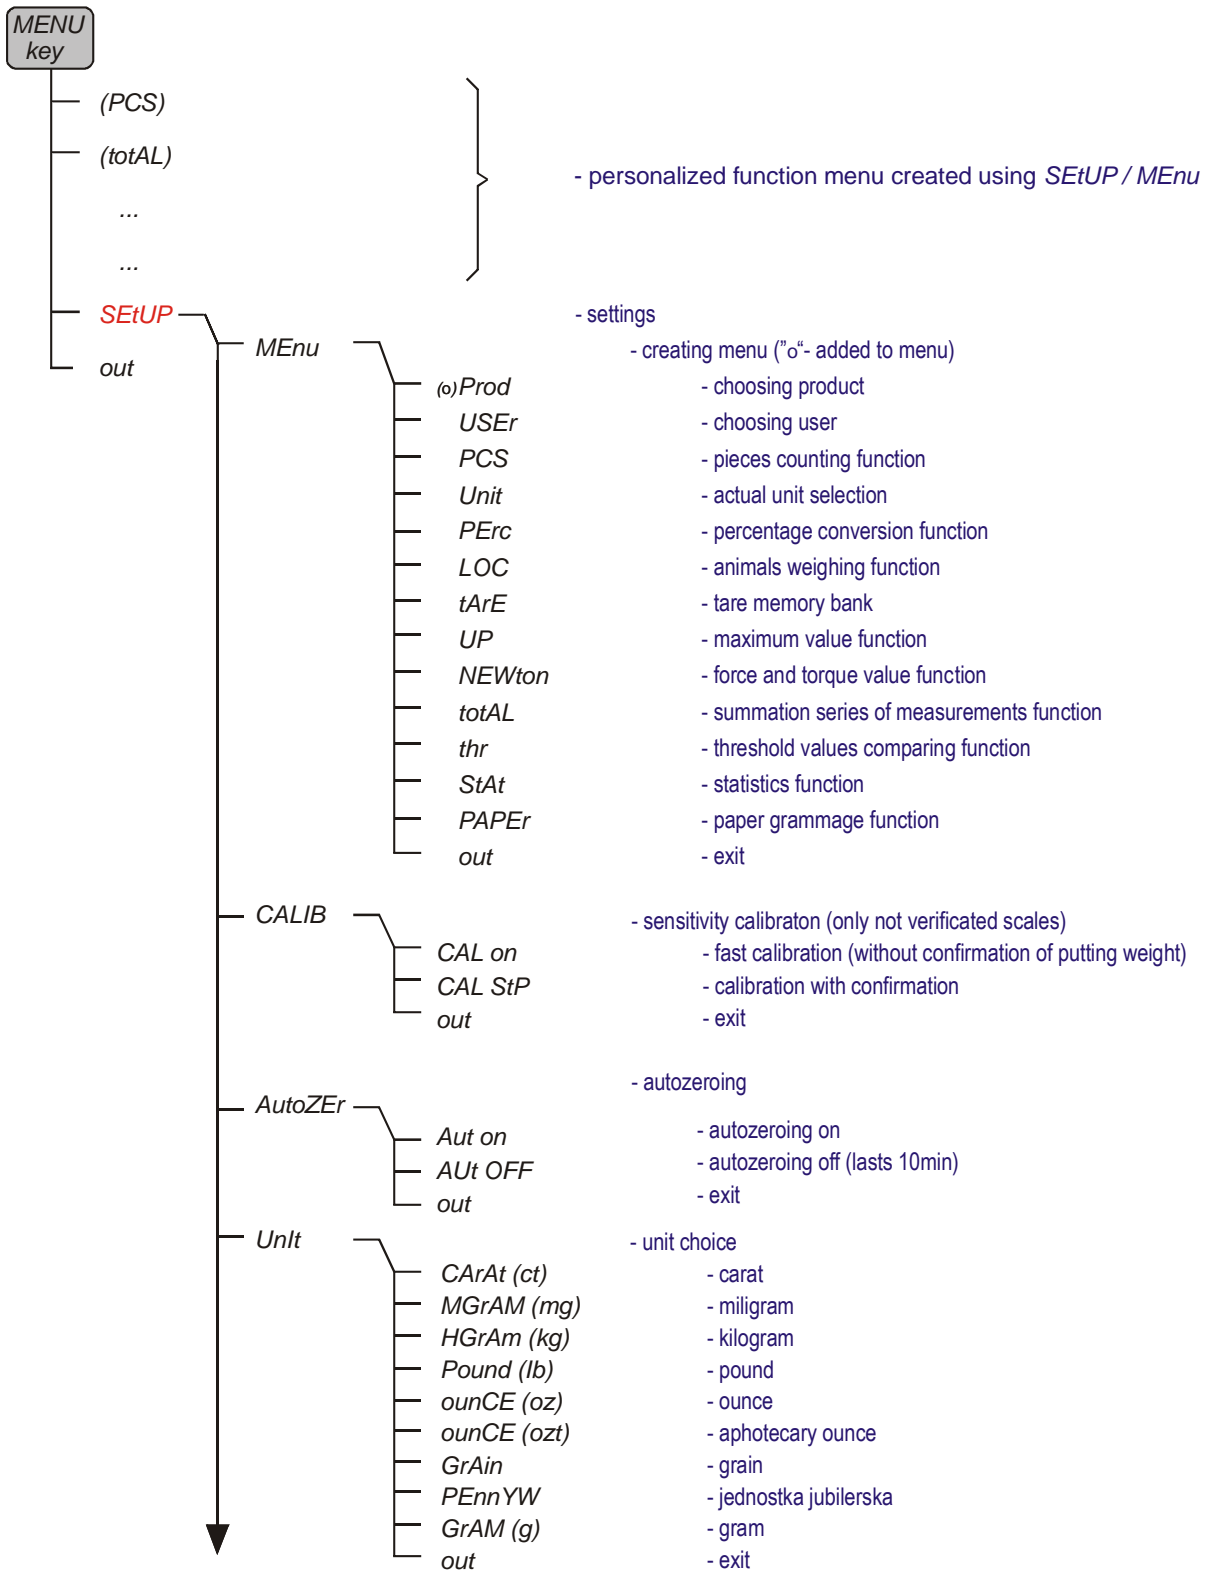 MENU
key
(PCS)
(totAL)
- personalized function menu created using SEtUP / MEnu
...
...
SEtUP - settings
MEnu - creating menu ("o"- added to menu)
out
(o)Prod - choosing product
USEr - choosing user
PCS - pieces counting function
Unit - actual unit selection
PErc - percentage conversion function
LOC - animals weighing function
tArE - tare memory bank
UP - maximum value function
NEWton - force and torque value function
totAL - summation series of measurements function
thr - threshold values comparing function
StAt - statistics function
PAPEr - paper grammage function
out - exit
CALIB - sensitivity calibraton (only not verificated scales)
CAL on - fast calibration (without confirmation of putting weight)
CAL StP - calibration with confirmation
out - exit
AutoZEr - autozeroing
Aut on - autozeroing on
AUt OFF - autozeroing off (lasts 10min)
out - exit
UnIt - unit choice
CArAt (ct) - carat
MGrAM (mg) - miligram
HGrAm (kg) - kilogram
Pound (lb) - pound
ounCE (oz) - ounce
ounCE (ozt) - aphotecary ounce
GrAin - grain
PEnnYW - jednostka jubilerska
GrAM (g) - gram
out - exit